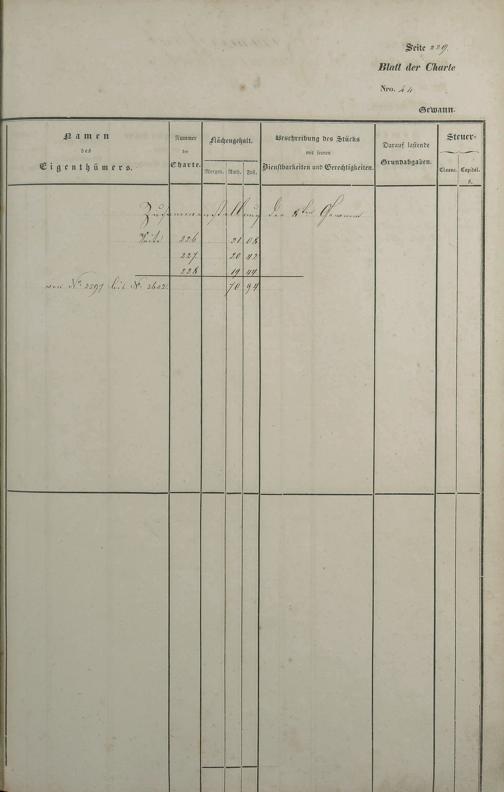 Seite 229
Blatt der Charte
Nro. 44
Gewann.
Namen des Eigenthümers.
Nummer der Charte.
Flächengehalt.
Morgen. Ruth. Fuß.
Beschreibung des Stücks mit seinen Dienstbarkeiten und Gerechtigkeiten.
Darauf lastende Grundabgaben.
Steuer-
Classe. Capital.
fl.
Zusammenstellung der 8ten Gewann
Seite 226 31 08
227 20 42
228 19 44
von No. 2597 bis No. 2602 70 94